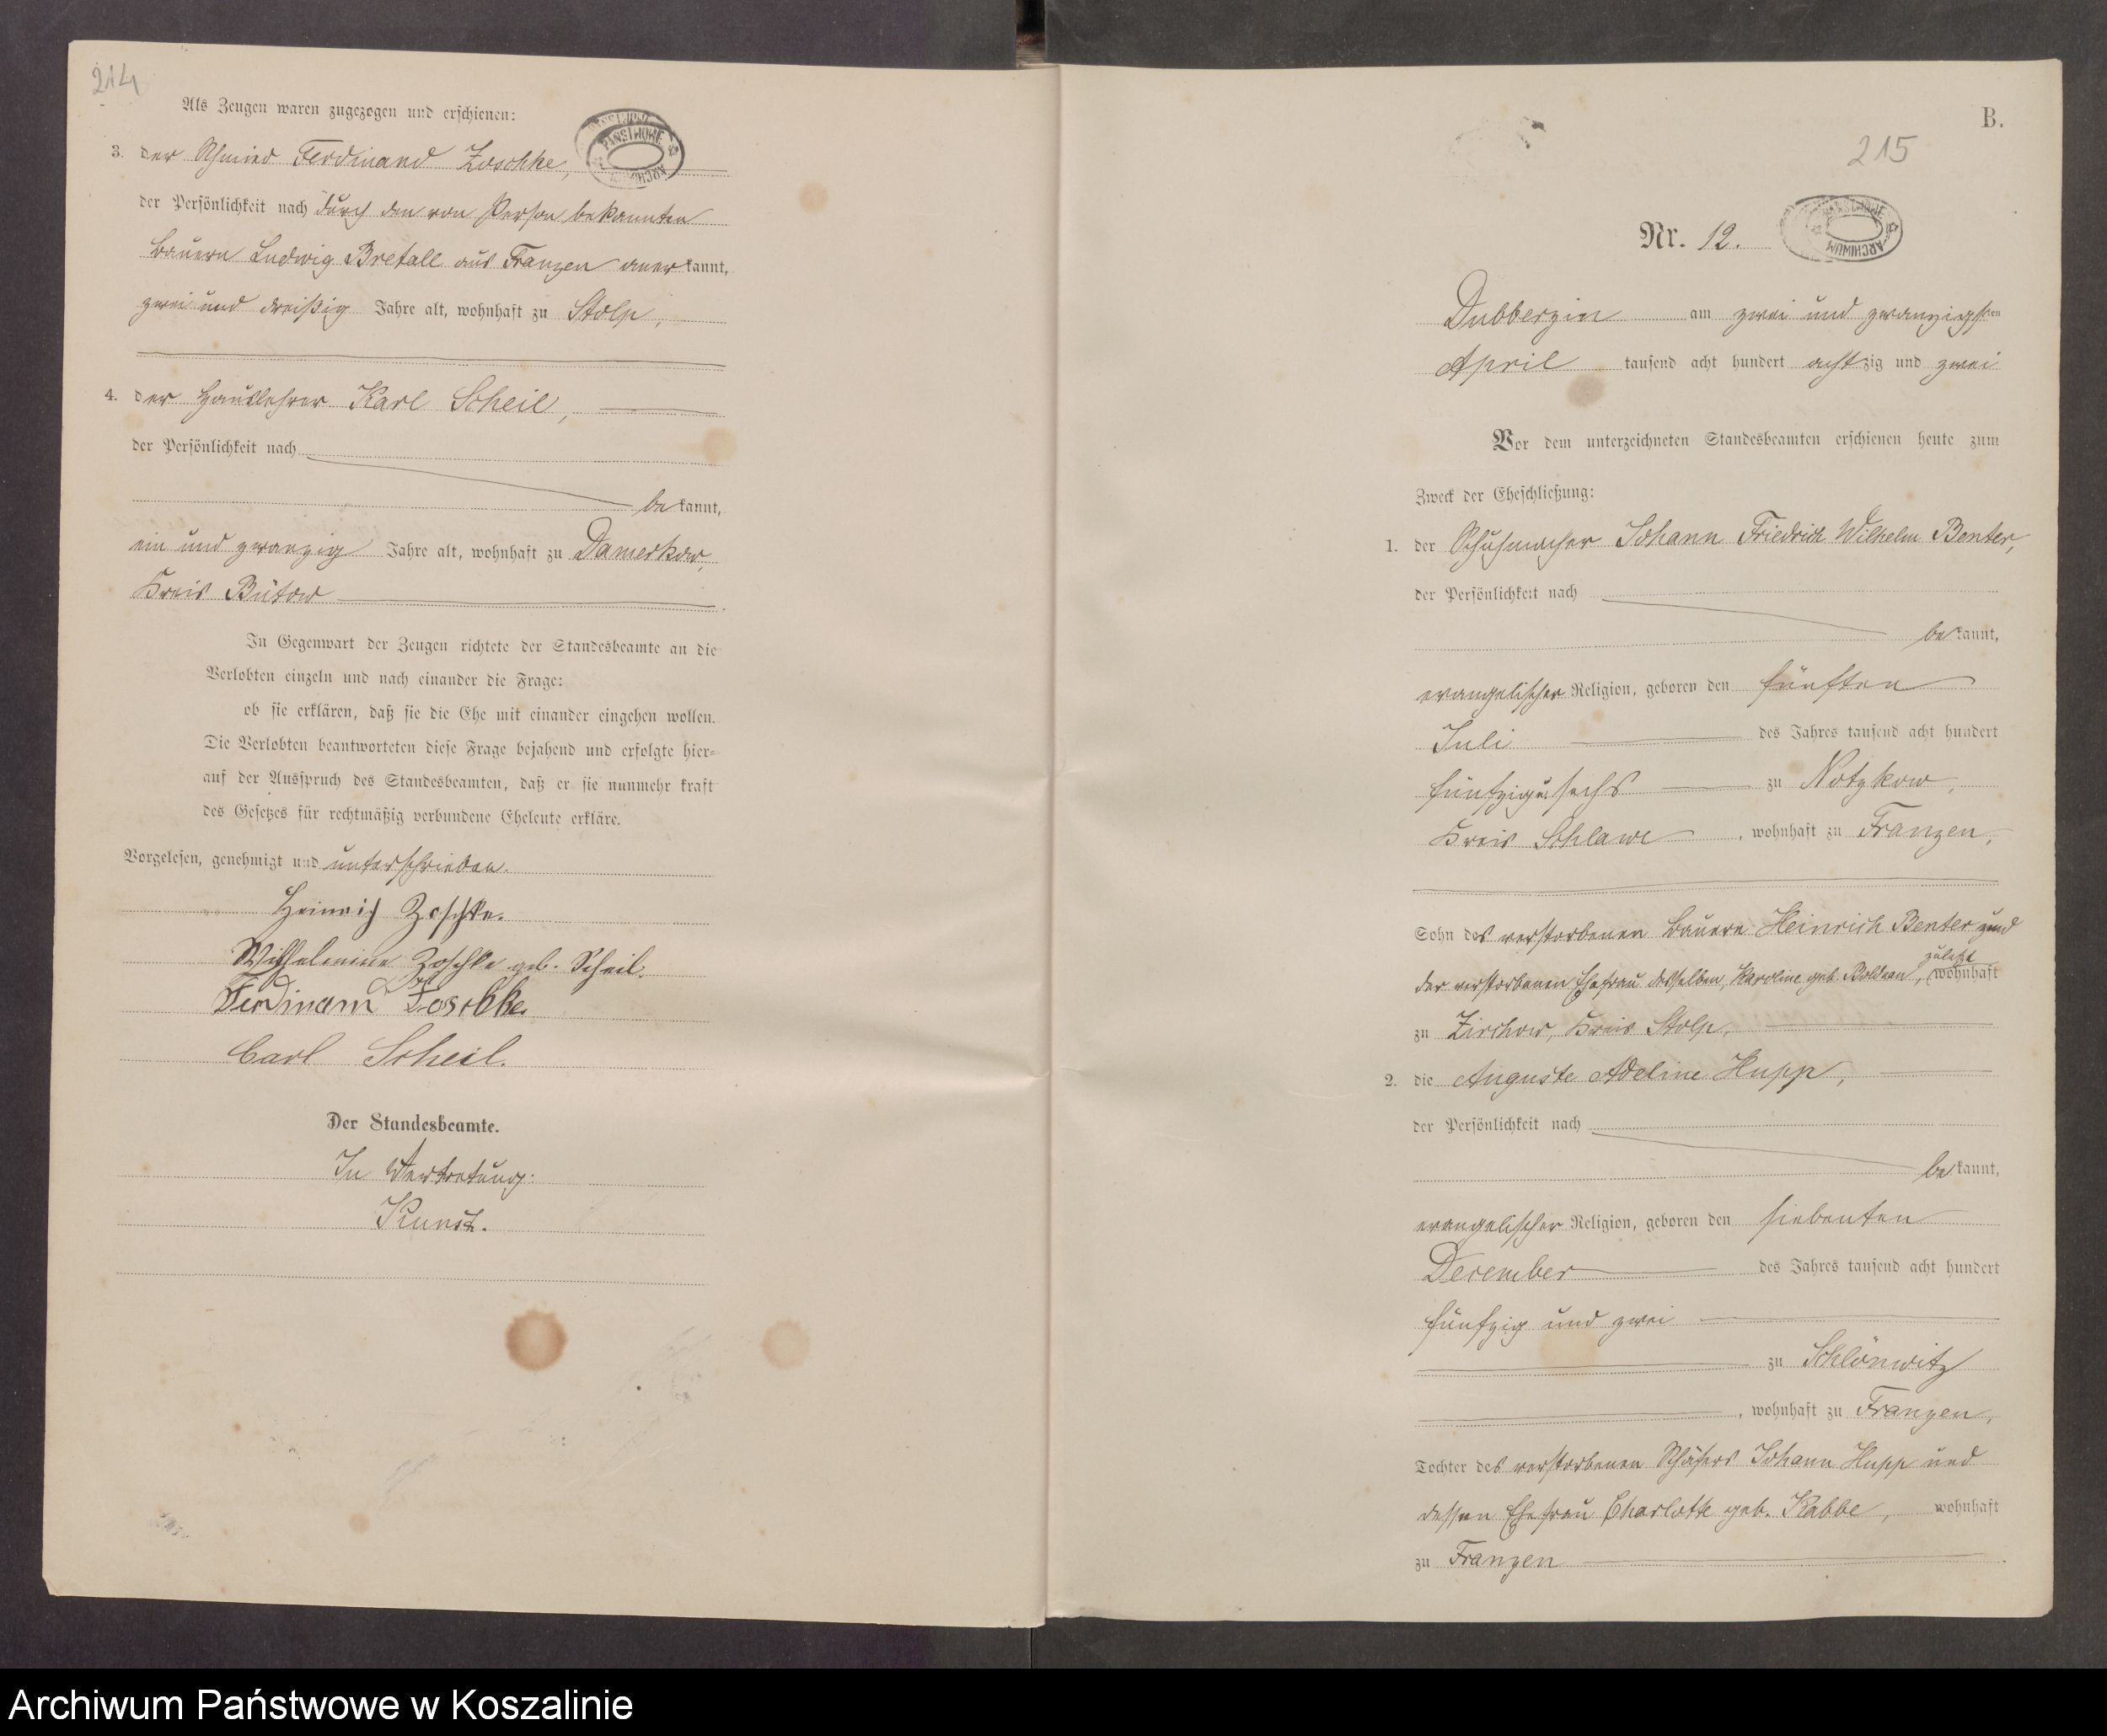 214
Als Zeugen waren zugezogen und erschienen:
3. der Schmied Ferdinand Zoschke,
der Persönlichkeit nach durch den von Person bekannten
Bauern Ludwig Bretall aus Franzen anerkannt,
zwei und dreißig Jahre alt, wohnhaft zu Stolp,
4. der Hauslehrer Karl Scheil,
der Persönlichkeit nach
bekannt,
ein und zwanzig Jahre alt, wohnhaft zu Damerkow,
Kreis Bütow
In Gegenwart der Zeugen richtete der Standesbeamte an die
Verlobten einzeln und nach einander die Frage:
ob sie erklären, daß sie die Ehe mit einander eingehen wollen.
Die Verlobten beantworteten diese Frage bejahend und erfolgte hier-
auf der Ausspruch des Standesbeamten, daß er sie nunmehr kraft
des Gesetzes für rechtmäßig verbundene Eheleute erkläre.
Vorgelesen, genehmigt und unterschrieben.
Heinrich Zoschke.
Wilhelmine Zoschke geb. Scheil.
Ferdinand Zoschke.
Carl Scheil.
Der Standesbeamte.
In Vertretung:
Kunst.
B.
215
PANSTWOWE ARCHIWUM
Nr. 12.
Dubberzin am zwei und zwanzigsten
April tausend acht hundert achtzig und zwei
Vor dem unterzeichneten Standesbeamten erschienen heute zum
Zweck der Eheschließung:
1. der Schuhmacher Johann Friedrich Wilhelm Benter,
der Persönlichkeit nach
bekannt,
evangelischer Religion, geboren den fünften
Juli des Jahres tausend acht hundert
fünfzig u. sechs zu Notzkow,
Kreis Schlawe, wohnhaft zu Franzen,
Sohn des verstorbenen Bauern Heinrich Benter und
der verstorbenen Ehefrau desselben, Karoline geb. , zuletzt wohnhaft
zu Zirchow, Kreis Stolp.
2. die Auguste Adeline Hupp,
der Persönlichkeit nach
bekannt,
evangelischer Religion, geboren den siebenten
December des Jahres tausend acht hundert
fünfzig und zwei
zu Schlönwitz
, wohnhaft zu Franzen,
Tochter des verstorbenen Schäfers Johann Hupp und
dessen Ehefrau Charlotte geb. Kabbe, wohnhaft
zu Franzen
Archiwum Państwowe w Koszalinie